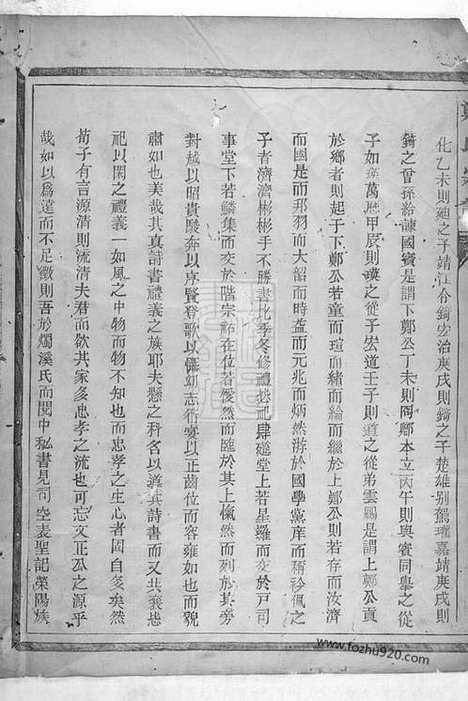 化乙未則廸之子靖江令錡宏治庚戌則錡之子楚雄别駕瓏嘉靖庚戌則
錡之曾孫給諫國賓是謂下鄭公丁未則同鄉本立丙午則與賓同舉之從
子如孫萬歷甲辰則瑛之從子宏道壬子則道之從弟雲鶚是謂上鄭公貢
於鄉者則起子下鄭公若童而瑄而緒而綸而繼於上鄭公則若存而汝濟
而國是而邦羽而大韶而時益而元兆而炳然游於國學黨庠而稱衿佩之
子者濟濟彬彬手不勝書比季冬修禮秩祀肆筵堂上若星羅而交於戸司
事堂下若鱗集而交於階宗 在位若僾然而臨於其上愾然而不違於其旁
對越以昭貴駿奔以序賢登歌以儀幼志行宴以正齒位而容雍如也而貌
肅如也美哉其真詩書禮義之族耶夫懸之科名以道其詩書而一以共義思
祀以閑之禮義一如風之中物而物不知也忠孝之生心者固自多矣然
荀子有言源清則流清夫君而欲其家多忠孝之流也可忘文正公之源乎
哉如以爲遠而不足徵則吾於燭溪氏而閱中秘書見司空表聖記滎陽族
www.fozhu920.com